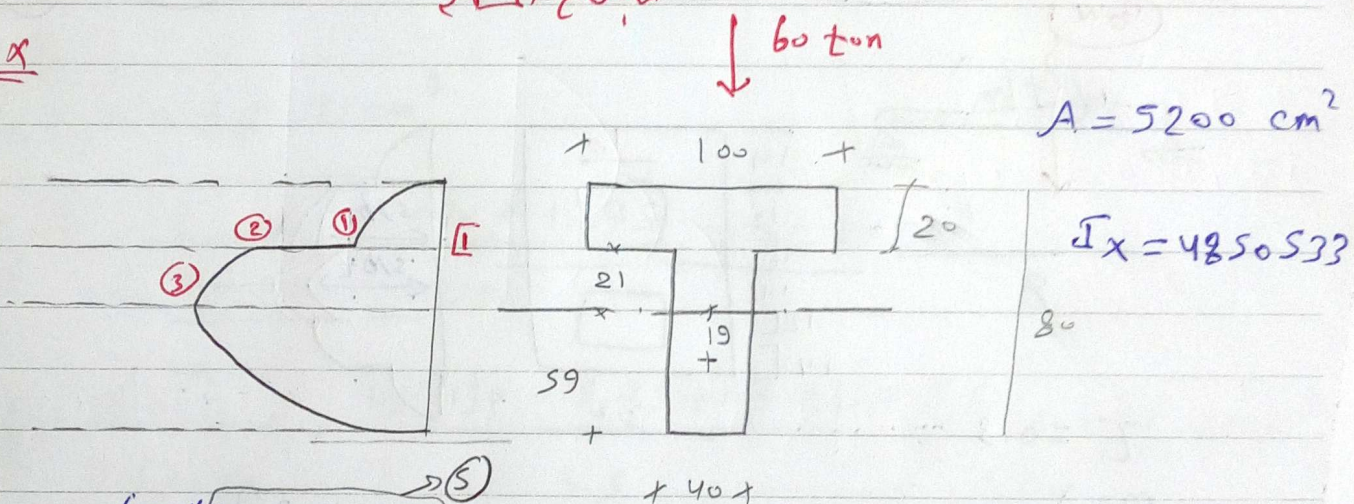 60 ton
x
A = 5200 cm²
100
② ①
20
Ix = 4850533
③
21
19
80
59
→ ⑤
40